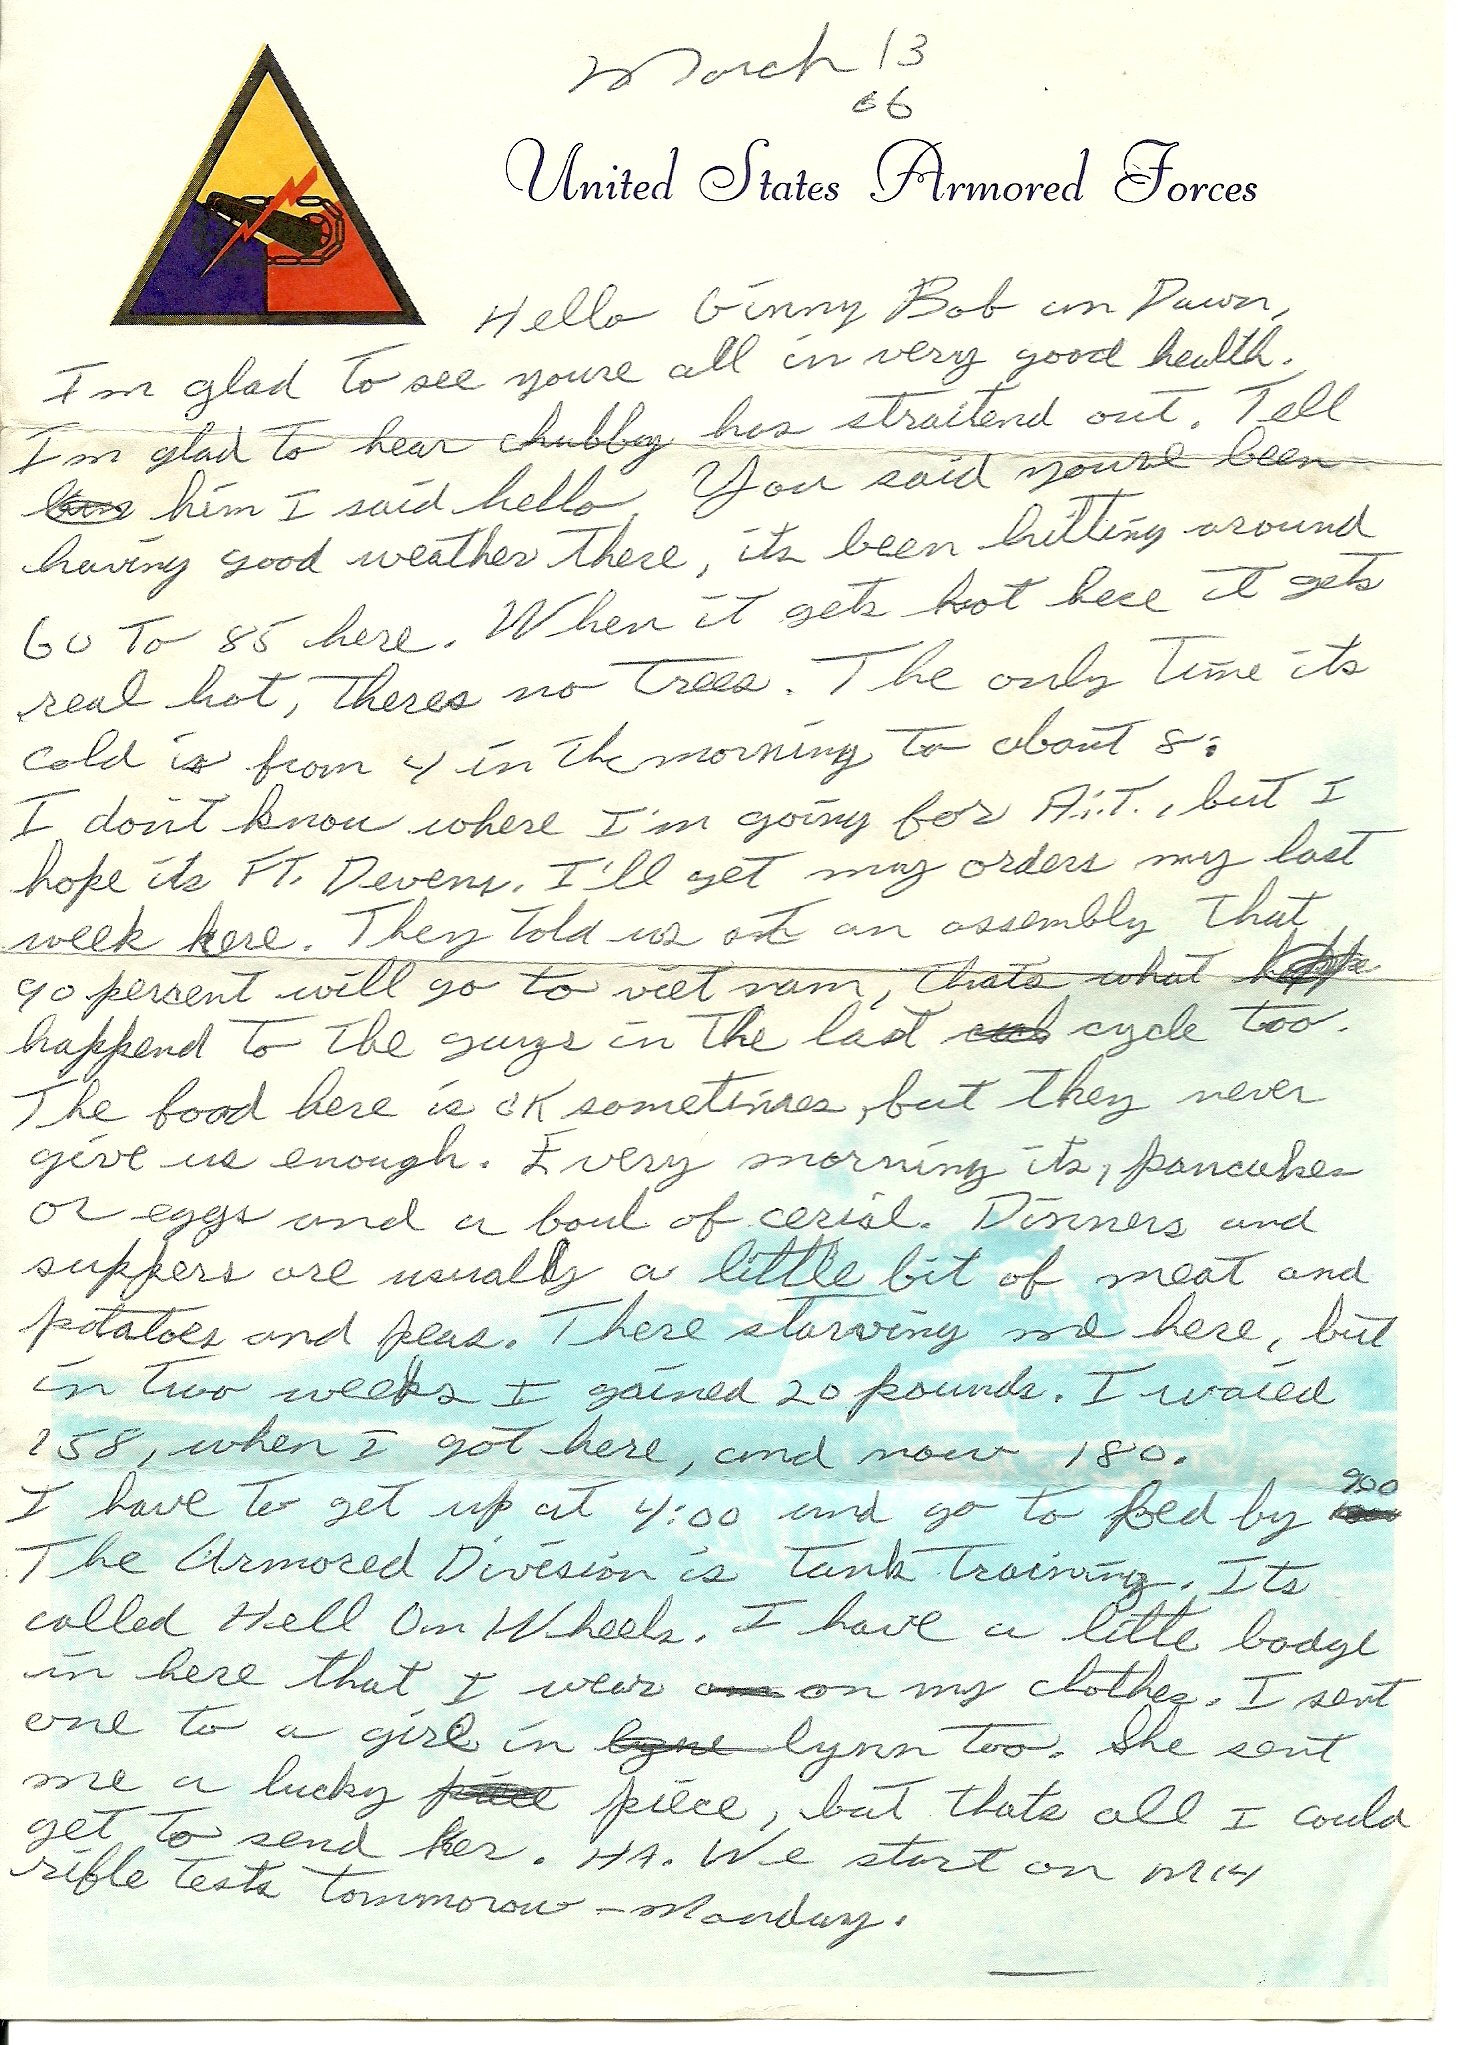 March 13
66
United States Armored Forces
Hello Ginny Bob an Dawn,
Im glad to see youre all in very good health.
Im glad to hear chubby has straitend out. Tell
him I said hello. You said youre been
having good weather there, its been hitting around
60 to 85 here. When it gets hot here it gets
real hot, theres no trees. The only time its
cold is from 4 in the morning to about 8:
I don't know where I'm going for A.I.T., but I
hope its FT. Devens. I'll get my orders my last
week here. They told us at an assembly that
90 percent will go to viet nam, thats what
happend to the guys in the last cycle too.
The food here is OK sometimes, but they never
give us enough. Every morning its, pancakes
or eggs and a boul of cerial. Dinners and
suppers are usually a little bit of meat and
potatoes and peas. There starving me here, but
in two weeks I gained 20 pounds. I waied
158, when I got here, and now 180.
I have to get up at 4:00 and go to bed by 900
The Armored Division is tank training. Its
called Hell On Wheels. I have a litte badge
in here that I wear on my clothes. I sent
one to a girl in lynn too. She sent
me a lucky piece, but thats all I could
get to send her. HA. We start on M14
rifle tests tommorow - Monday.